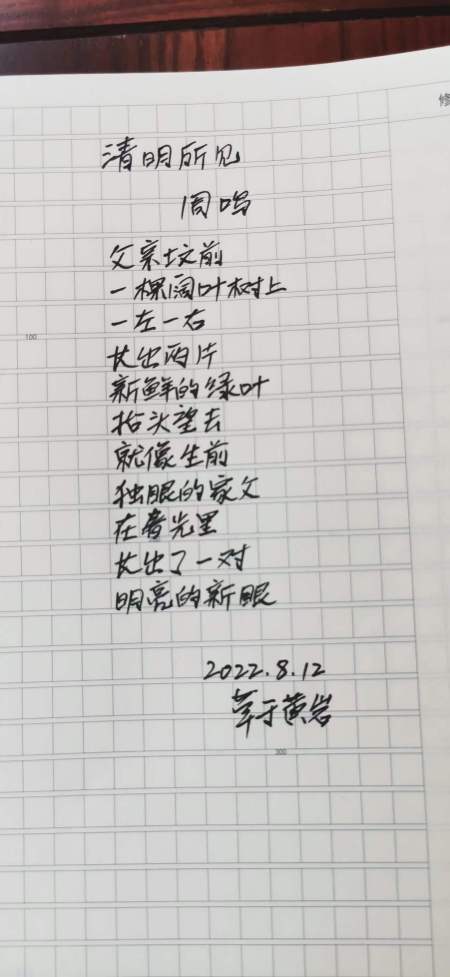 修
清明所见
周鸣
父亲坟前
一棵阔叶树上
一左一右
长出两片
新鲜的绿叶
抬头望去
就像生前
独眼的家父
在春光里
长出了一对
明亮的新眼
2022.8.12
草于黄岩
100
300